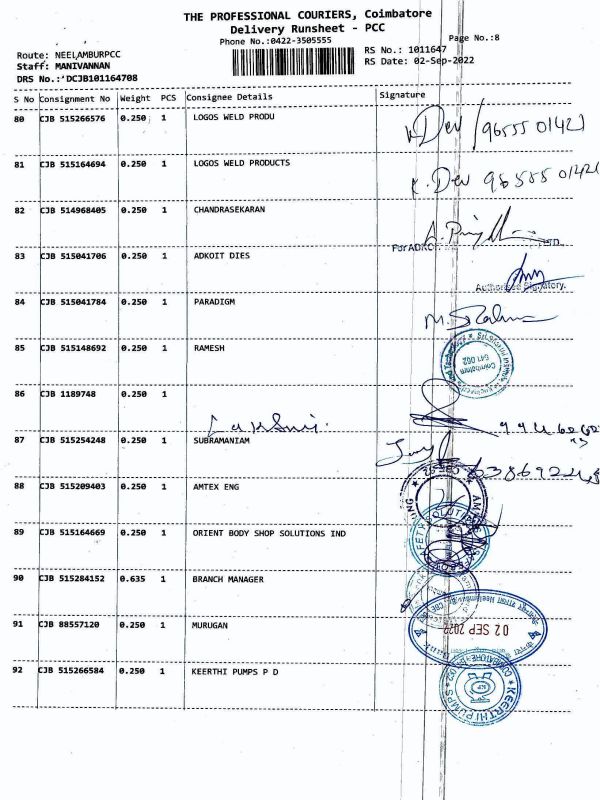 THE PROFESSIONAL COURIERS, Coimbatore
Delivery Runsheet - PCC
Phone No.:0422-3505555
Page No.:8
Route: NEELAMBURPCC
RS No.: 1011647
Staff: MANIVANNAN
RS Date: 02-Sep-2022
DRS No.:'DCJB101164708
S No Consignment No Weight PCS Consignee Details Signature
80 CJB 515266576 0.250 1 LOGOS WELD PRODU
K Dev / 9655501421
81 CJB 515164694 0.250 1 LOGOS WELD PRODUCTS
K. Dev
82 CJB 514968405 0.250 1 CHANDRASEKARAN
83 CJB 515041706 0.250 1 ADKOIT DIES
For ADKO
Authorised Signatory.
84 CJB 515041784 0.250 1 PARADIGM
85 CJB 515148692 0.250 1 RAMESH
Coimbatore
641 062
86 CJB 1189748 0.250 1
Lakshmi.
87 CJB 515254248 0.250 1 SUBRAMANIAM
88 CJB 515209403 0.250 1 AMTEX ENG
89 CJB 515164669 0.250 1 ORIENT BODY SHOP SOLUTIONS IND
90 CJB 515284152 0.635 1 BRANCH MANAGER
91 CJB 88557120 0.250 1 MURUGAN
02 SEP 2022
92 CJB 515266584 0.250 1 KEERTHI PUMPS P D
KEERTHI PUMPS